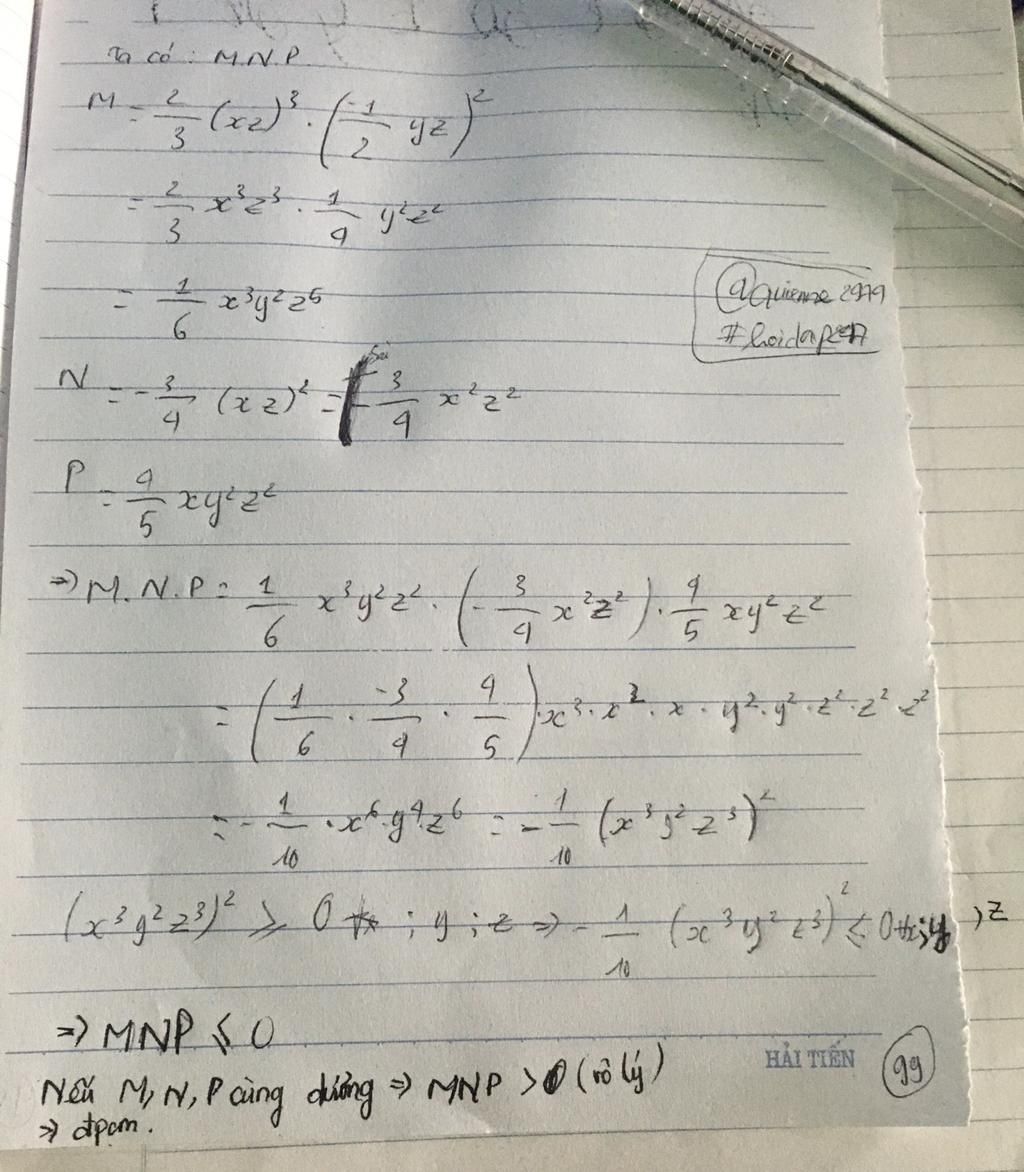 Ta có : M.N.P
M = 2/3 (xz)³ . (-1/2 yz)²
= 2/3 x³z³ . 1/4 y²z²
= 1/6 x³y²z⁵
#hoidap247
N = -3/4 (xz)² = -3/4 x²z²
P = 4/5 xy²z²
=> M.N.P = 1/6 x³y²z² . (-3/4 x²z²) . 4/5 xy²z²
= (1/6 . -3/4 . 4/5) . x³ . x² . x . y² . y² . z² . z² . z²
= -1/10 . x⁶.y⁴z⁶ = -1/10 (x³y²z³)²
(x³y²z³)² ⩾ 0 ∀x ; y ; z => -1/10 (x³y²z³)² ⩽ 0 ∀x;y;z
=> MNP ⩽ 0
HẢI TIẾN
99
Nếu M, N, P cùng dương => MNP > 0 (vô lý)
=> đpcm.